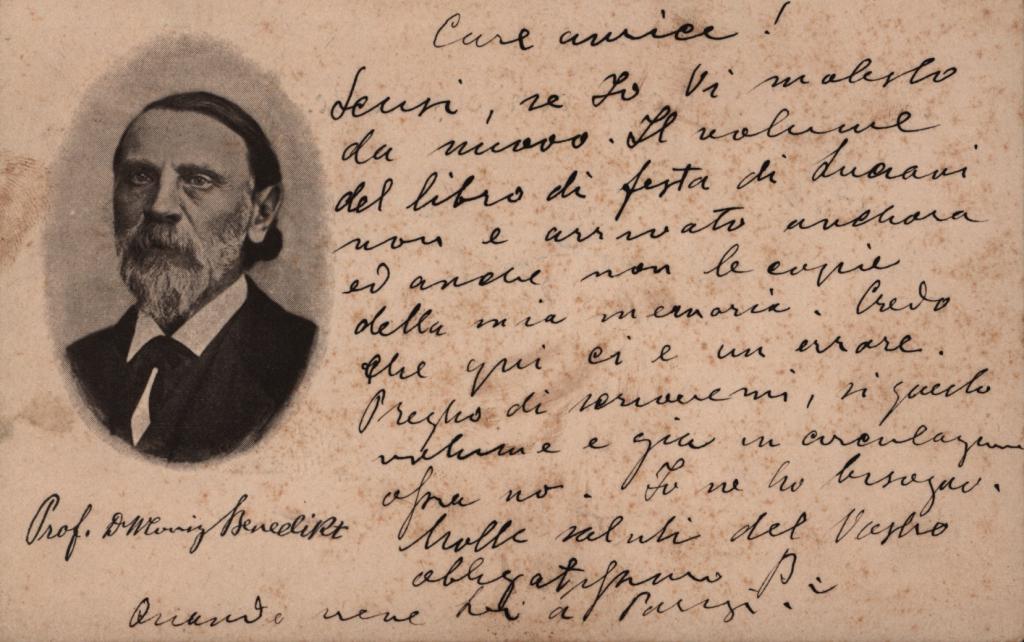 Care amice!
Scusi, se Io Vi molesto
da nuovo. Il volume
del libro di festa di Luciani
non e arrivato anchora
ed anche non le copie
della mia memoria. Credo
che qui ci e un errore.
Pregho di scrivermi, si questo
volume e gia in circulazione
ossia no. Io ne ho bisogno.
Molte saluti del Vostro
obbligatissimo B.
Quando vene Lei a Parigi?
Prof. Dr Moriz Benedikt